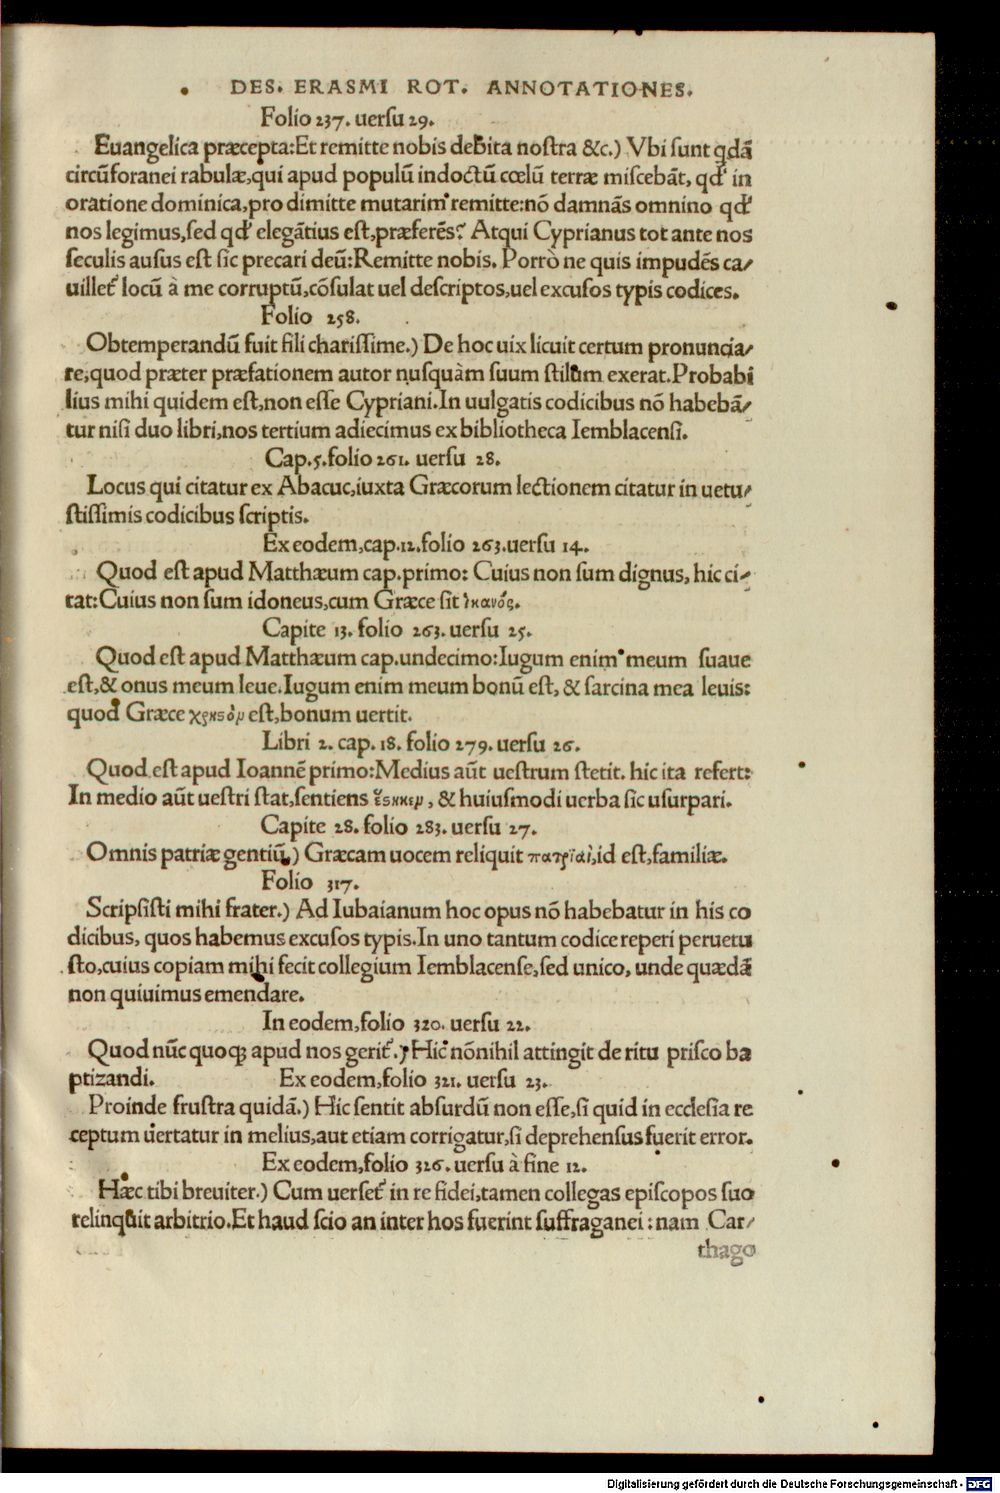 DES. ERASMI ROT. ANNOTATIONES.
Folio 237. uersu 29.
Euangelica præcepta:Et remitte nobis debita nostra &c.) Vbi sunt qdā
circūforanei rabulæ,qui apud populū indoctū cœlū terræ miscebāt, qd' in
oratione dominica,pro dimitte mutarim' remitte:nō damnās omnino qd'
nos legimus,sed qd' elegātius est,præferēs? Atqui Cyprianus tot ante nos
seculis ausus est sic precari deū:Remitte nobis. Porrò ne quis impudēs ca/
uillet' locū à me corruptū,cōsulat uel descriptos,uel excusos typis codices.
Folio 258.
Obtemperandū fuit fili charissime.) De hoc uix licuit certum pronuncia/
re,quod præter præfationem autor nusquàm suum stilum exerat.Probabi
lius mihi quidem est,non esse Cypriani.In uulgatis codicibus nō habebā/
tur nisi duo libri,nos tertium adiecimus ex bibliotheca Iemblacensi.
Cap.5.folio 261. uersu 28.
Locus qui citatur ex Abacuc,iuxta Græcorum lectionem citatur in uetu/
stissimis codicibus scriptis.
Ex eodem,cap.12.folio 263.uersu 14.
Quod est apud Matthæum cap.primo: Cuius non sum dignus, hic ci/
tat:Cuius non sum idoneus,cum Græce sit ἱκανός.
Capite 13. folio 263. uersu 25.
Quod est apud Matthæum cap.undecimo:Iugum enim meum suaue
est,& onus meum leue.Iugum enim meum bonū est, & sarcina mea leuis:
quod Græce χρηστὸν est,bonum uertit.
Libri 2. cap. 18. folio 279. uersu 26.
Quod est apud Ioannē primo:Medius aūt uestrum stetit. hic ita refert:
In medio aūt uestri stat,sentiens ἕστηκεν, & huiusmodi uerba sic usurpari.
Capite 28. folio 283. uersu 27.
Omnis patriæ gentiū.) Græcam uocem reliquit πατριαὶ,id est,familiæ.
Folio 317.
Scripsisti mihi frater.) Ad Iubaianum hoc opus nō habebatur in his co
dicibus, quos habemus excusos typis.In uno tantum codice reperi peruetu
sto,cuius copiam mihi fecit collegium Iemblacense,sed unico, unde quædā
non quiuimus emendare.
In eodem,folio 320. uersu 22.
Quod nūc quoq; apud nos gerit'.) Hic nōnihil attingit de ritu prisco ba
ptizandi. Ex eodem,folio 321. uersu 23.
Proinde frustra quidā.) Hic sentit absurdū non esse,si quid in ecclesia re
ceptum uertatur in melius,aut etiam corrigatur,si deprehensus fuerit error.
Ex eodem,folio 326. uersu à fine 12.
Hæc tibi breuiter.) Cum uerset' in re fidei,tamen collegas episcopos suo
relinquit arbitrio.Et haud scio an inter hos fuerint suffraganei:nam Car/
thago
Digitalisierung gefördert durch die Deutsche Forschungsgemeinschaft - DFG